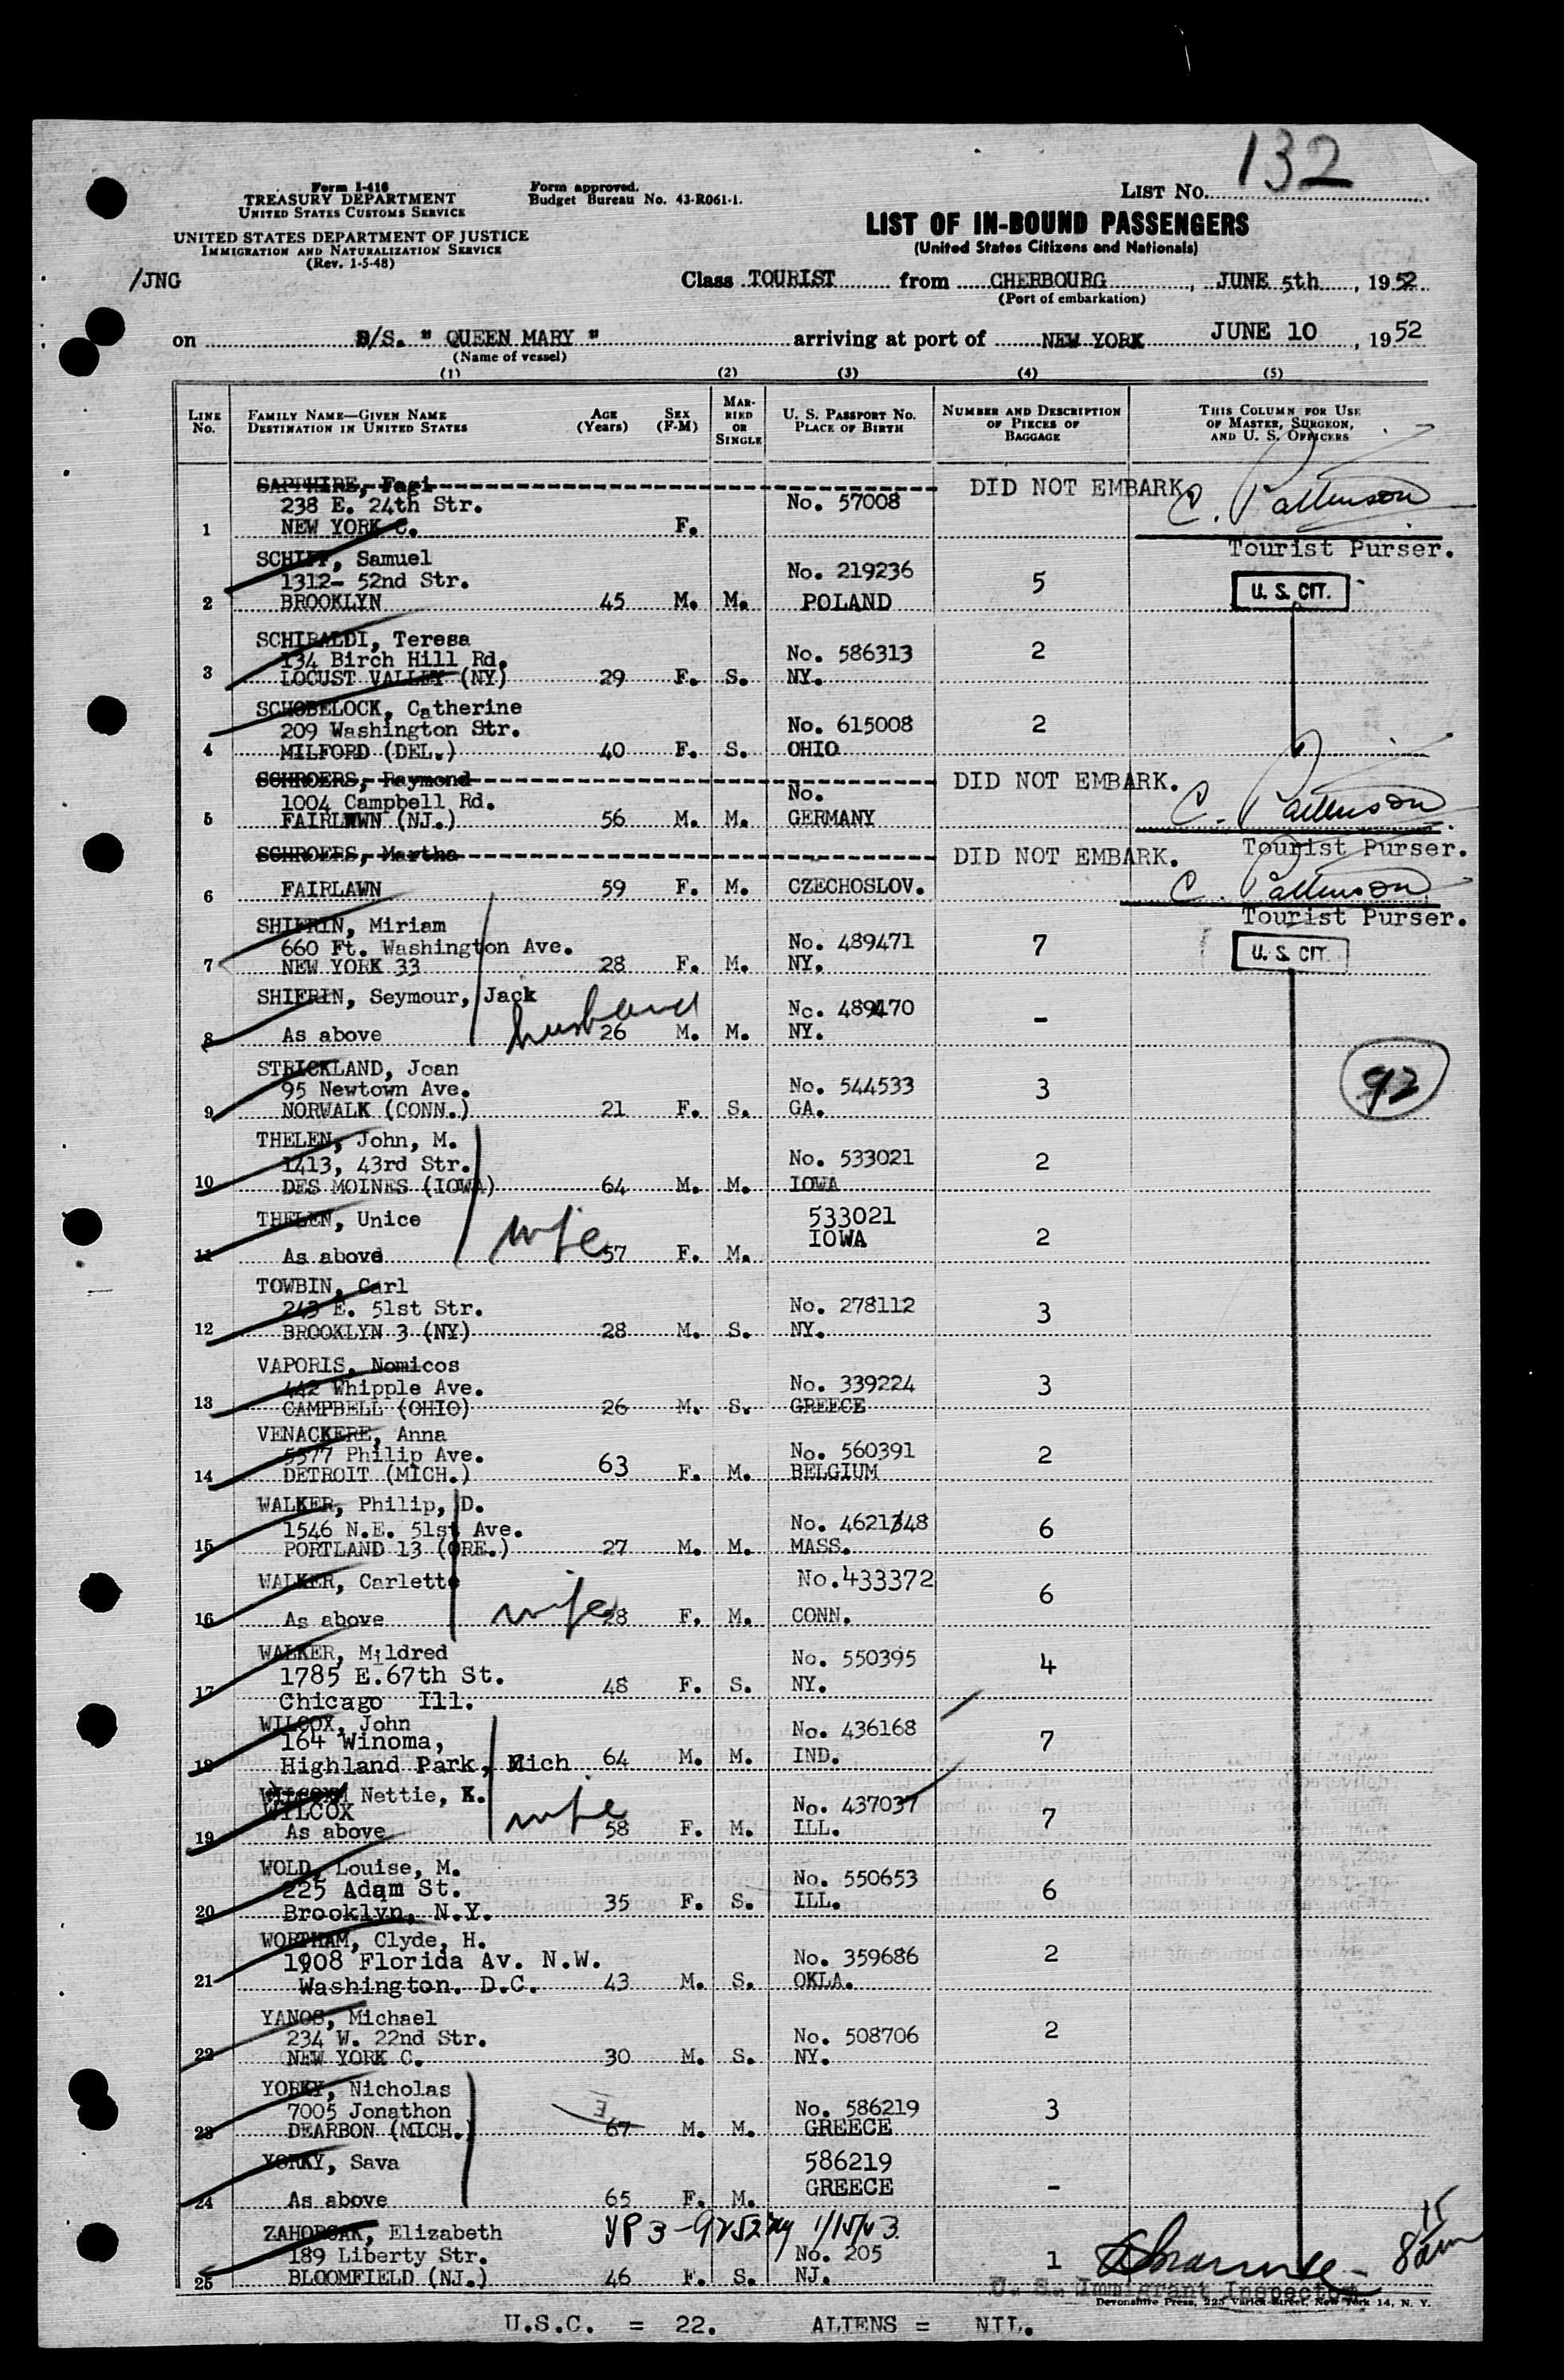 132
Form I-416
TREASURY DEPARTMENT
UNITED STATES CUSTOMS SERVICE
Form approved.
Budget Bureau No. 43-R061-1.
LIST NO.
UNITED STATES DEPARTMENT OF JUSTICE
IMMIGRATION AND NATURALIZATION SERVICE
(Rev. 1-5-48)
LIST OF IN-BOUND PASSENGERS
(United States Citizens and Nationals)
/JNG
Class TOURIST from CHERBOURG, JUNE 5th, 1952
(Port of embarkation)
on S/S. " QUEEN MARY " arriving at port of NEW YORK JUNE 10, 1952
(Name of vessel)
(1) (2) (3) (4) (5)
LINE No. FAMILY NAME—GIVEN NAME DESTINATION IN UNITED STATES AGE (Years) SEX (F-M) MARRIED OR SINGLE U. S. PASSPORT No. PLACE OF BIRTH NUMBER AND DESCRIPTION OF PIECES OF BAGGAGE THIS COLUMN FOR USE OF MASTER, SURGEON, AND U. S. OFFICERS
SAPPHIRE, Fagi DID NOT EMBARK. C. Pattenson
238 E. 24th Str. No. 57008
1 NEW YORK C. F.
Tourist Purser.
SCHIFF, Samuel
1312- 52nd Str. No. 219236 5 U. S. CIT.
2 BROOKLYN 45 M. M. POLAND
SCHIRALDI, Teresa
134 Birch Hill Rd. No. 586313 2
3 LOCUST VALLEY (NY) 29 F. S. NY.
SCHOBELOCK, Catherine
209 Washington Str. No. 615008 2
4 MILFORD (DEL.) 40 F. S. OHIO
SCHROERS, Raymond DID NOT EMBARK.
1004 Campbell Rd. No. C. Pattenson
5 FAIRLAWN (NJ.) 56 M. M. GERMANY
Tourist Purser.
SCHROERS, Martha DID NOT EMBARK.
6 FAIRLAWN 59 F. M. CZECHOSLOV. C. Pattenson
Tourist Purser.
SHIFRIN, Miriam
660 Ft. Washington Ave. No. 489471 7 U. S. CIT.
7 NEW YORK 33 28 F. M. NY.
SHIFRIN, Seymour, Jack
husband No. 489470 -
8 As above 26 M. M. NY.
STRICKLAND, Joan
95 Newtown Ave. No. 544533 3 92
9 NORWALK (CONN.) 21 F. S. GA.
THELEN, John, M.
1413, 43rd Str. No. 533021 2
10 DES MOINES (IOWA) 64 M. M. IOWA
THELEN, Unice 533021
wife IOWA 2
11 As above 57 F. M.
TOWBIN, Carl
243 E. 51st Str. No. 278112 3
12 BROOKLYN 3 (NY) 28 M. S. NY.
VAPORIS, Nomicos
442 Whipple Ave. No. 339224 3
13 CAMPBELL (OHIO) 26 M. S. GREECE
VENACKERE, Anna
5577 Philip Ave. No. 560391 2
14 DETROIT (MICH.) 63 F. M. BELGIUM
WALKER, Philip, D.
1546 N.E. 51st Ave. No. 462148 6
15 PORTLAND 13 (ORE.) 27 M. M. MASS.
WALKER, Carlette No.433372
wife 6
16 As above 28 F. M. CONN.
WALKER, Mildred
1785 E.67th St. No. 550395 4
17 Chicago Ill. 48 F. S. NY.
WILCOX, John
164 Winoma, No. 436168 7
18 Highland Park, Mich 64 M. M. IND.
Nettie, K.
WILCOX wife No. 437037 7
19 As above 58 F. M. ILL.
WOLD, Louise, M.
225 Adam St. No. 550653 6
20 Brooklyn, N.Y. 35 F. S. ILL.
WORTHAM, Clyde, H.
1908 Florida Av. N.W. No. 359686 2
21 Washington. D.C. 43 M. S. OKLA.
YANOS, Michael
234 W. 22nd Str. No. 508706 2
22 NEW YORK C. 30 M. S. NY.
YORKY, Nicholas
7005 Jonathon No. 586219 3
23 DEARBON (MICH.) 67 M. M. GREECE
YORKY, Sava 586219
GREECE -
24 As above 65 F. M.
ZAHORSAK, Elizabeth
189 Liberty Str. No. 205 1
25 BLOOMFIELD (NJ.) 46 F. S. NJ.
U. S. Immigrant Inspector
Devonshire Press, 225 Varick Street, New York 14, N. Y.
U.S.C. = 22. ALIENS = NIL.